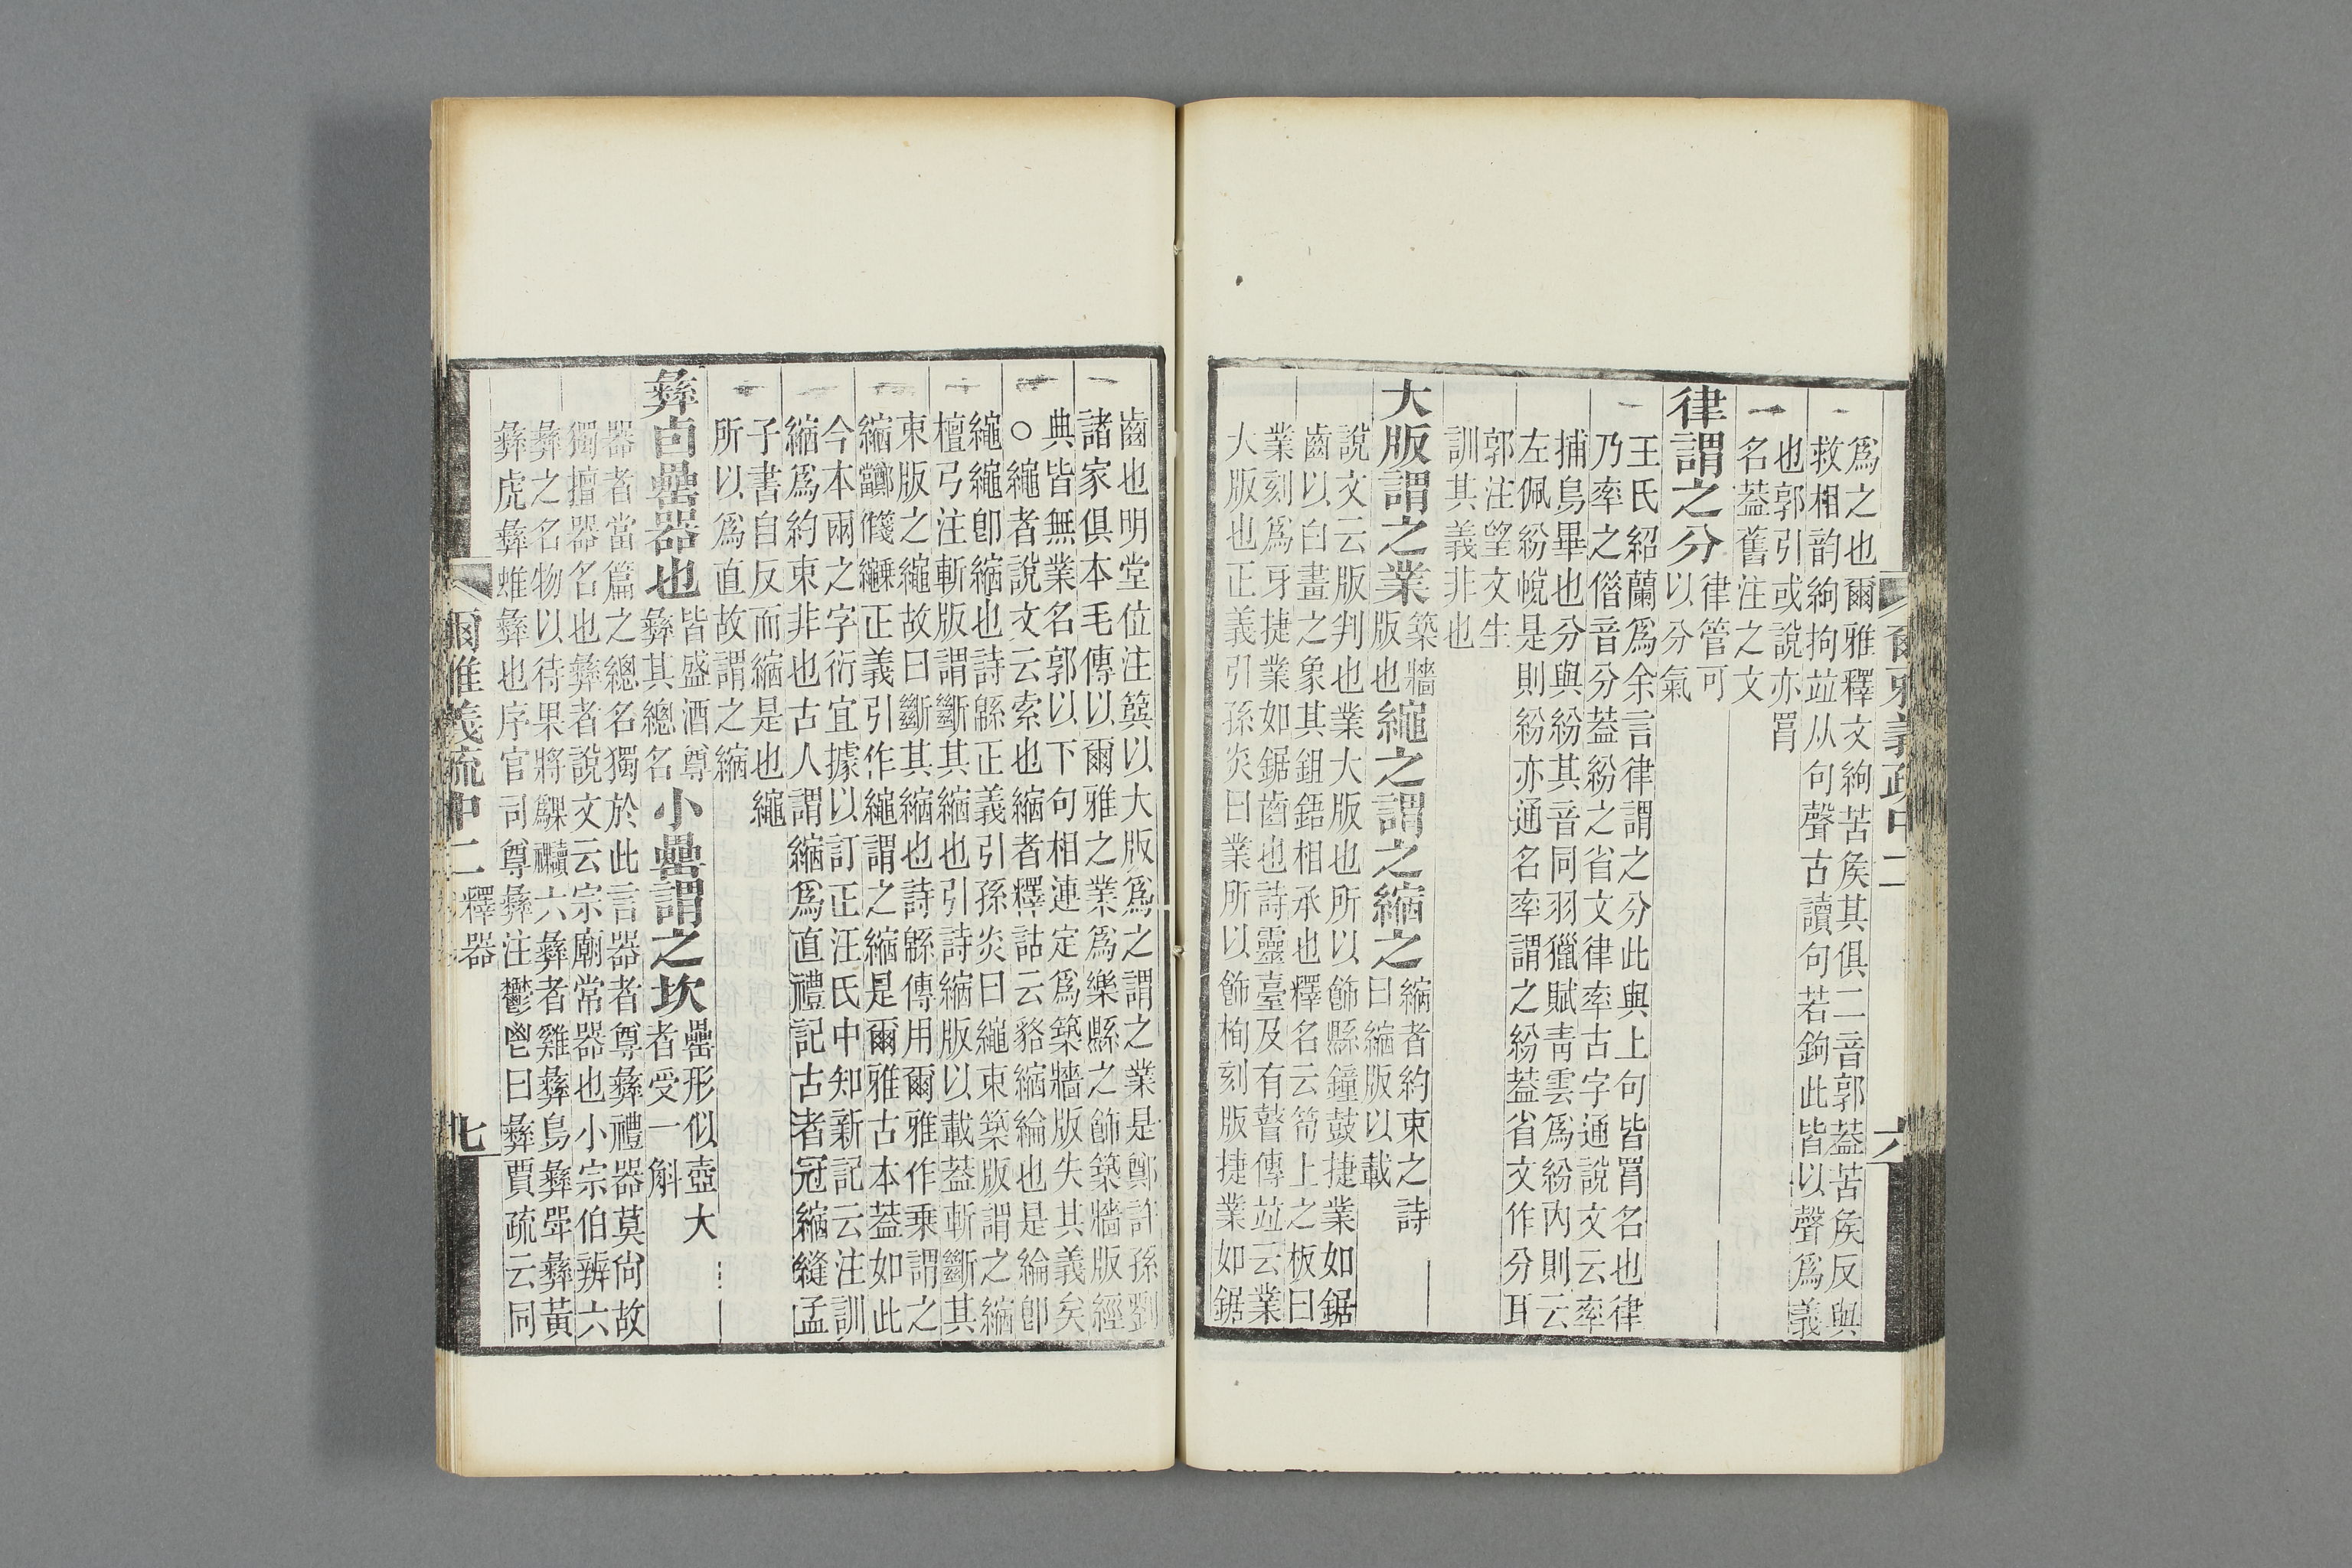 爾雅義疏中二
六
爲之也爾雅釋文絇苦矦其俱二音郭葢苦矦反與
救相韵絇拘竝从句聲古讀句若鉤此皆以聲爲義
也郭引或說亦罥
名葢舊注之文
律謂之分
律管可
以分氣
王氏紹蘭爲余言律謂之分此與上句皆罥名也律
乃率之偕音分葢紛之省文律率古字通說文云率
捕鳥畢也分與紛其音同羽獵賦青雲爲紛内則云
左佩紛帨是則紛亦通名率謂之紛葢省文作分耳
郭注望文生
訓其義非也
大版謂之業
築牆
版也
繩之謂之縮之
縮者約束之詩
曰縮版以載
說文云版判也業大版也所以飾縣鐘鼓捷業如鋸
齒以白畫之象其鉏鋙相承也釋名云筍上之板曰
業刻爲牙捷業如鋸齒也詩靈臺及有瞽傳竝云業
大版也正義引孫炎曰業所以飾栒刻版捷業如鋸
齒也明堂位注簨以大版爲之謂之業是鄭許孫劉
諸家俱本毛傳以爾雅之業爲樂縣之飾築牆版經
典皆無業名郭以下句相連定爲築牆版失其義矣
○繩者說文云索也縮者釋詁云貉縮綸也是綸卽
繩繩卽縮也詩緜正義引孫炎曰繩束築版謂之縮
檀弓注斬版謂斷其縮也引詩縮版以載葢斬斷其
束版之繩故曰斷其縮也詩緜傳用爾雅作乗謂之
縮鄭箋乗當作繩正義引作繩謂之縮是爾雅古本葢如此
今本兩之字衍宜據以訂正汪氏中知新記云注訓
縮爲約束非也古人謂縮爲直禮記古者冠縮縫孟
子書自反而縮是也繩
所以爲直故謂之縮
彝卣罍器也
皆盛酒尊
彝其總名
小罍謂之坎
罍形似壺大
者受一斛
器者當篇之總名獨於此言器者尊彝禮器莫尙故
獨擅器名也彝者說文云宗廟常器也小宗伯辨六
彝之名物以待果將鄭注六彝者雞彝鳥彝斝彝黃
彝虎彝蜼彝也序官司尊彝注鬱鬯曰彝賈疏云同
爾雅義疏中二
釋器
七